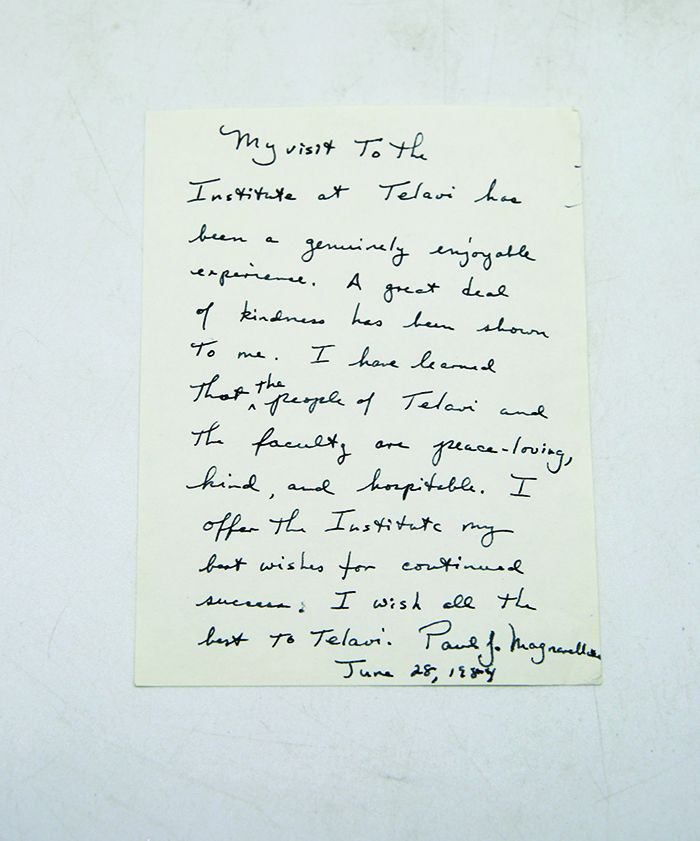 My visit To the
Institute at Telavi has
been a genuinely enjoyable
experience. A great deal
of kindness has been shown
To me. I have learned
That the people of Telavi and
The faculty are peace-loving,
kind, and hospitable. I
offer The Institute my
best wishes for continued
success. I wish all the
best To Telavi. Paul J. Magnarella
June 28, 1984